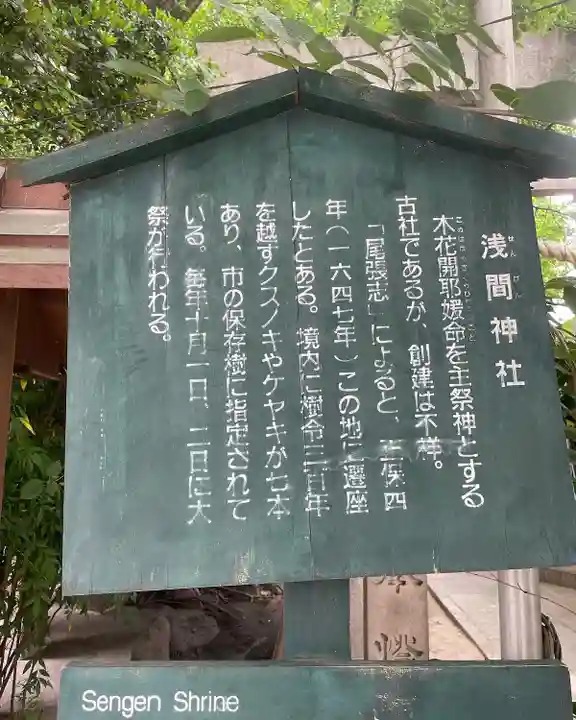 浅間神社
木花開耶媛命を主祭神とする
古社であるが、創建は不祥。
「尾張志」によると、正保四
年(一六四七年)この地に遷座
したとある。境内に樹令三百年
を越すクスノキやケヤキが七本
あり、市の保存樹に指定されて
いる。毎年十月一日、二日に大
祭が行われる。
Sengen Shrine